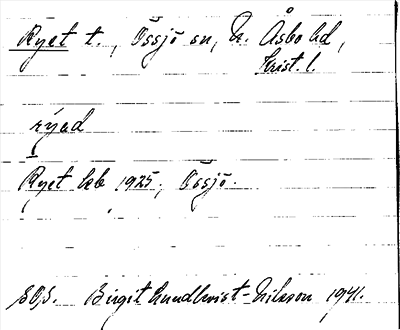 Ryet t., Össjö sn, N. Åsbo hd,
Krist. l.
rýəd
Ryet kb 1925, Össjö.
Birgit Lundqvist-Nilsson 1941.